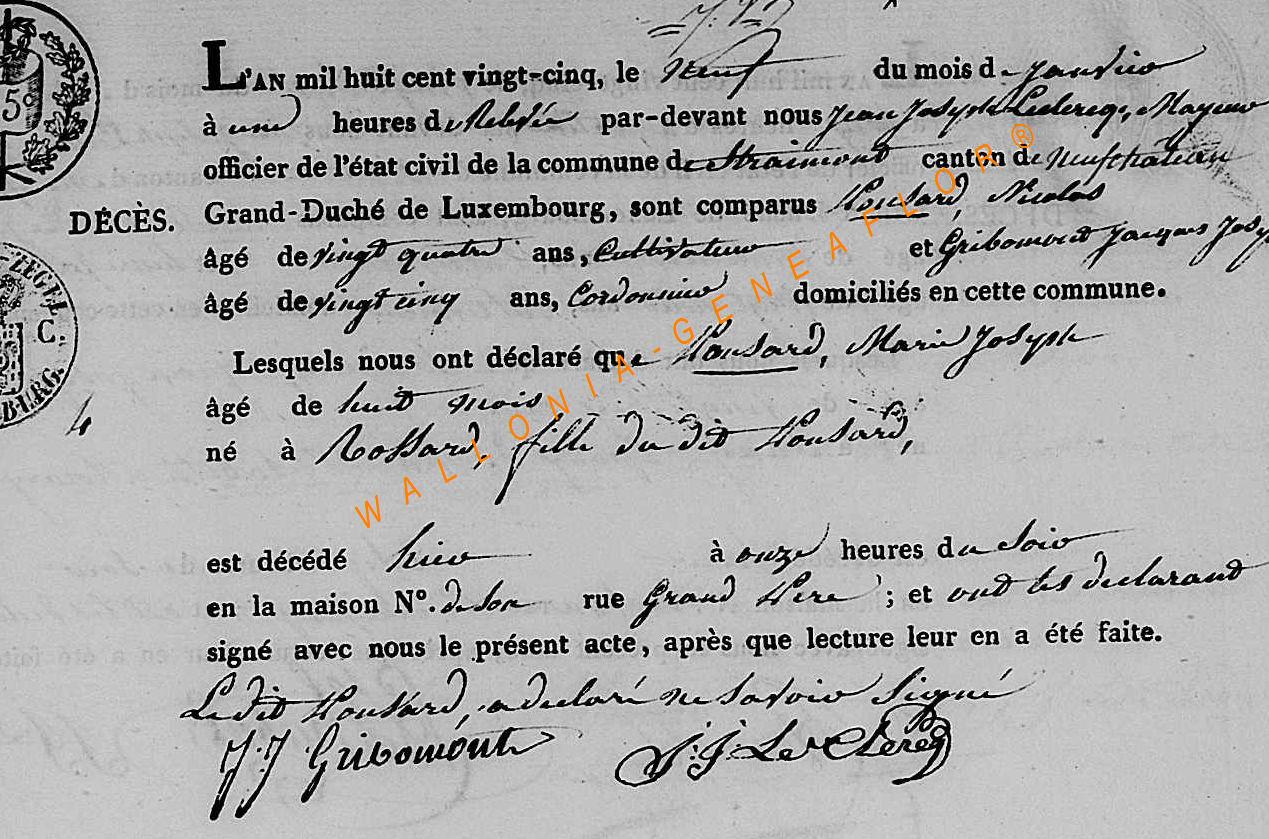 L'AN mil huit cent vingt-cinq, le neuf du mois de Janvier
à une heures de Relevée par-devant nous Jean Joseph Leclercq, Mayeur
officier de l'état civil de la commune de Straimont canton de Neufchâteau
DÉCÈS. Grand-Duché de Luxembourg, sont comparus Housard, Nicolas
âgé de vingt quatre ans, Cultivateur et Gribomont Jacques Josep
âgé de vingt cinq ans, Cordonnier domiciliés en cette commune.
Lesquels nous ont déclaré que Housard, Marie Joseph
âgé de huit mois
4
né à Rossard, fille du dit Housard,
est décédé hier à onze heures du soir
en la maison N°. de son rue Grand Pere ; et ont les declarant
signé avec nous le présent acte, après que lecture leur en a été faite.
Le dit Housard, a declaré ne savoir signé
J J Gribomont J: J. Le Clercq
5c
ZEGEL
C.
BURG.
WALLONIA-GENEAFLOR®